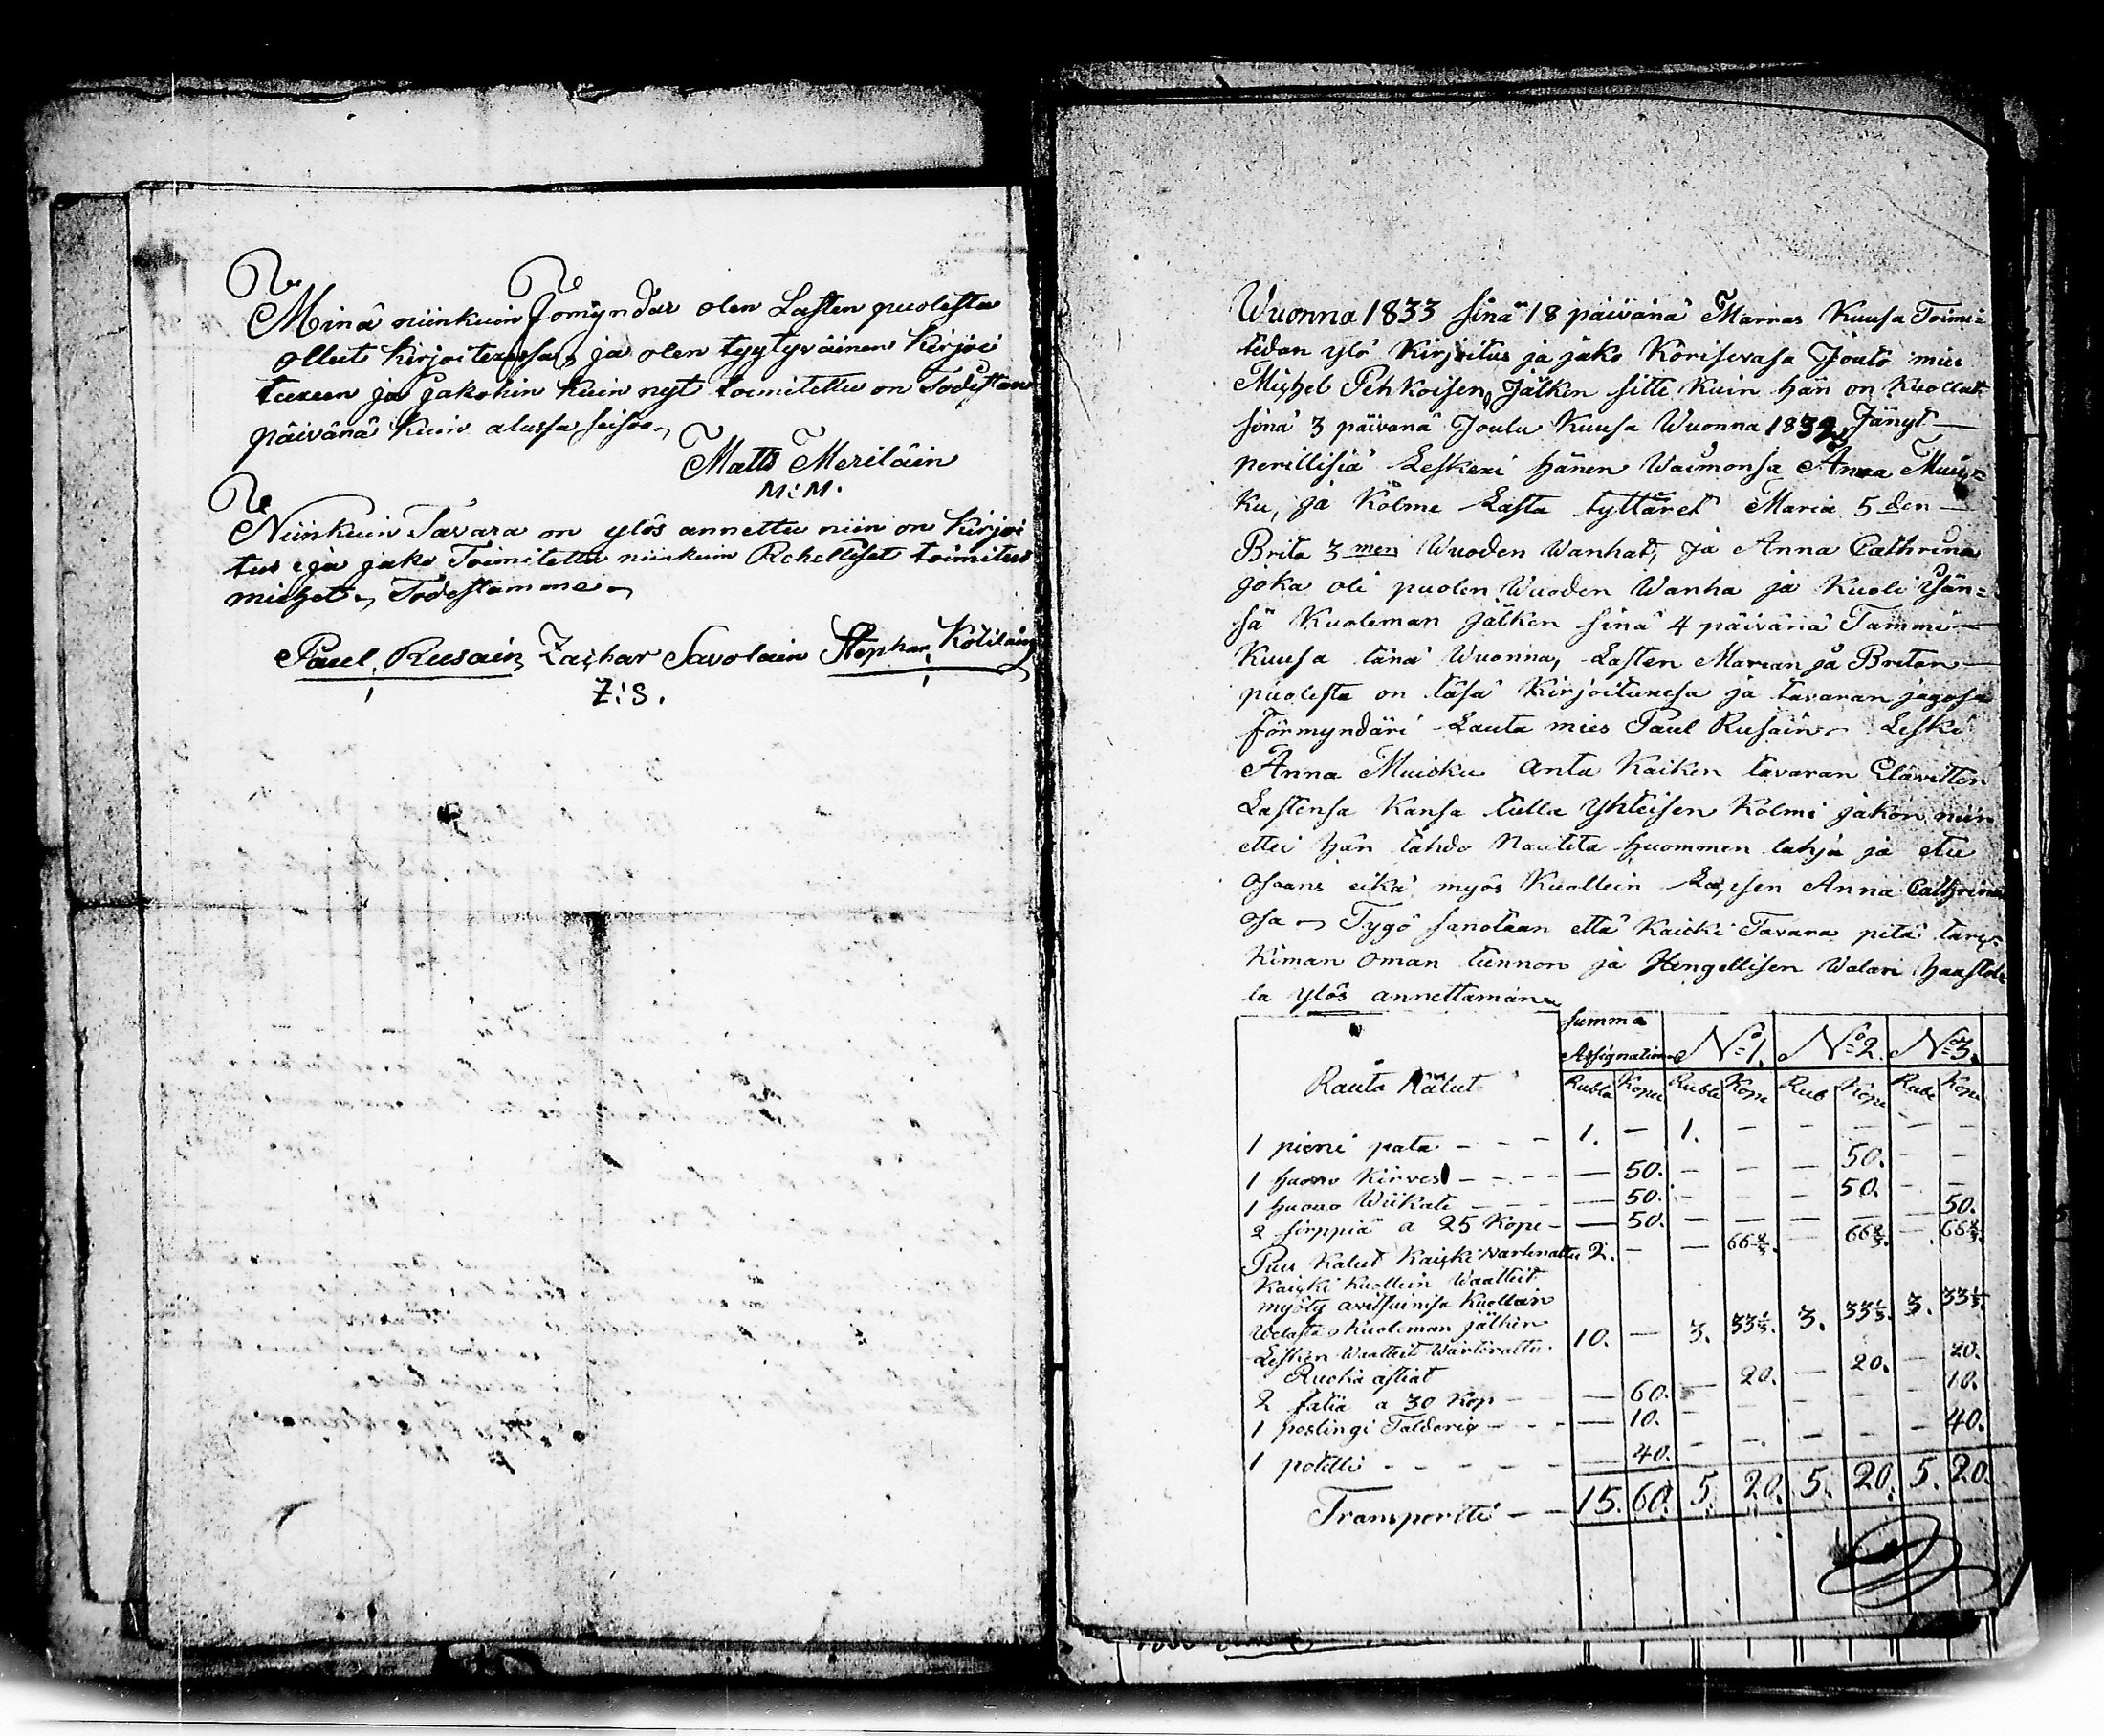 Minä niinkuin Fomÿndar olen Lasten puolesta
ollut kirjoituxessa, ja olen tyytyväinen kirjoi
tuxeen ja jakohin kuin nyt toimitettu on Todistan
päivänä kuin alussa seisoo
Matts Meriläin
M:M.
Niinkuin Tavara on ylös annettu niin on kirjoi
tus ja jako Toimitettu niinkuin Rehelliset toimitus
miehet Todistamme
Paul Rusain Zachar Savolain Stephan Kötiläin
Z:S.
Wuonna 1833 sinä 18 päivänä Marras Kuusa Toimi=
tedan ylö Kirjoitus ja jako Körisevasa Jouto mies
Michel Pehkoisen Jälken sitte kuin hän on kuollut
sinä 3 päivänä Joulu Kuusa Wuonna 1832 Jänyt
perillisiä Leskexi hänen Waimonsa Anna Muis=
ku, ja Kolme Lasta tyttäret Maria 5 den
Brita 3 men Wuoden Wanhat, ja Anna Cathrina
joka oli puolen Wuoden Wanha ja Kuoli Isän=
sä Kuoleman jälken sinä 4 päivänä Tammi
Kuusa tänä Wuonna, Lasten Marian ja Britan
puolesta on täsä Kirjoituxesa ja tavaran jagosa
förmyndäri Lauta mies Paul Rusain Leski
Anna Muisku anta Kaiken tavaran Elävitten
Lastensa Kansa tulla Yhteisen Kolmi jakon niin
ettei hän tahdo Nautita huommen lahja ja etu
osaans eikä myös Kuollein Lapsen Anna Cathrina
osa Tygö sanotaan että Kaicki Tavara pitä tarc=
kiman oman tunnon ja Hengellisen Walan haastol
la ylös annettaman
Summa
Assignation No 1. No 2. No 3.
Rauta Kalut Rubla Kope Rubla Kope Rub Kope Rube Kope
1 pieni pata - - - 1. — 1. — — — — —
1 huono Kirves - - - — 50. — — — 50. — —
1 huono Wiikate - - - — 50. — — — 50. — —
2 sirppiä a 25 Kope — 50. — — — — — 50.
Puu Kalut Kaicki warderattu 2. — — 66 2/3. — 66 2/3. — 66 2/3.
Kaicki Kuollein Waatteit
myöty Kuollein
Welasta Kuoleman jälkin
Lesken Waatteit Warderattu 10. — 3. 33 1/3. 3. 33 1/3. 3. 33 1/3.
Ruoka astiat
2 fatia a 30 Kop — 60. — 20. — 20. — 20.
1 poslingi Talderia - - — 10. — — — — — 10.
1 potelli - - - - — 40. — — — — — 40.
Transporiti — 15. 60. 5. 20. 5. 20. 5. 20.